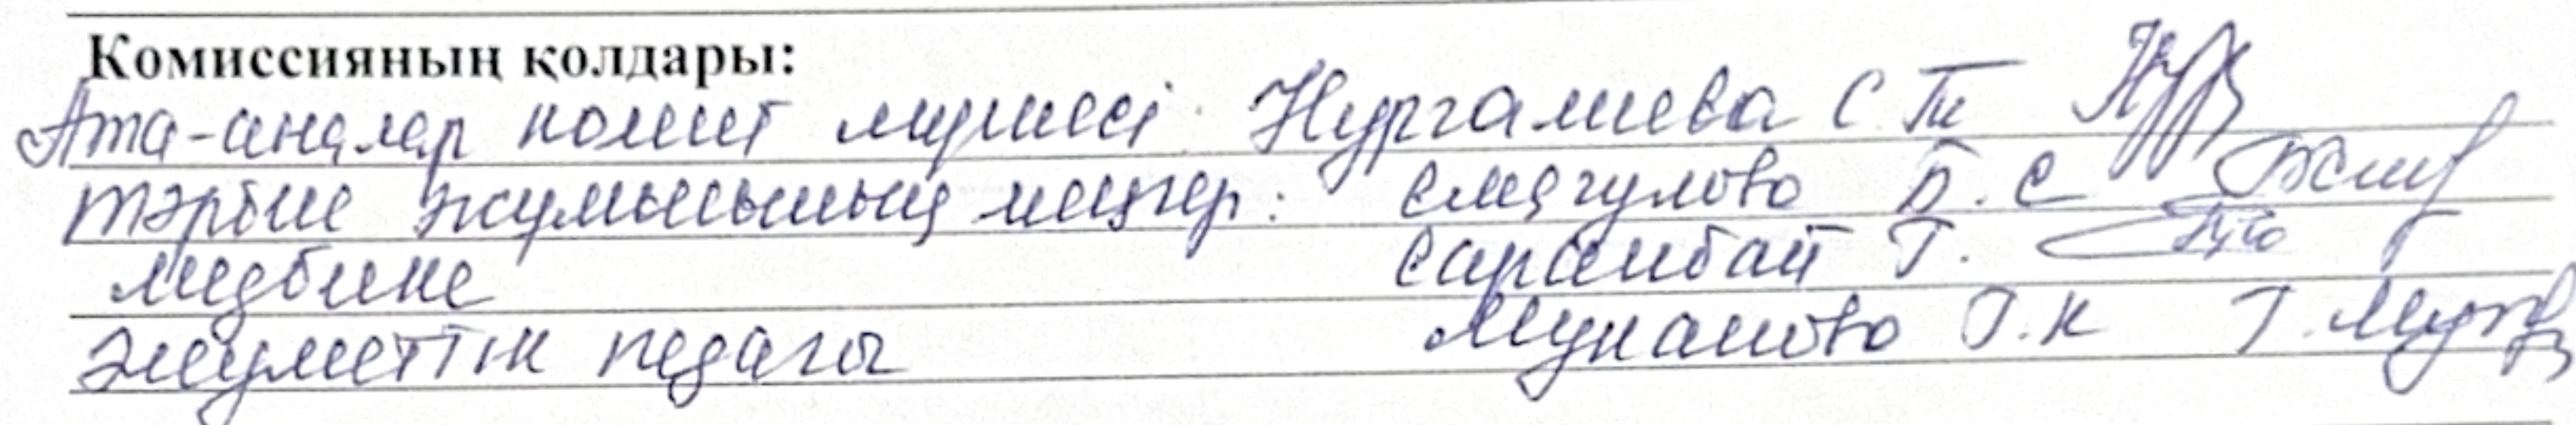 Комиссияның қолдары:
Ата-аналар комит мүшесі Нургалиева С.Т
тәрбие жұмысының меңгер: Смағулова Б.С
медбике Сарсынбай Г.
әлеуметтік педагогы Муканова Г.К Г.Мук